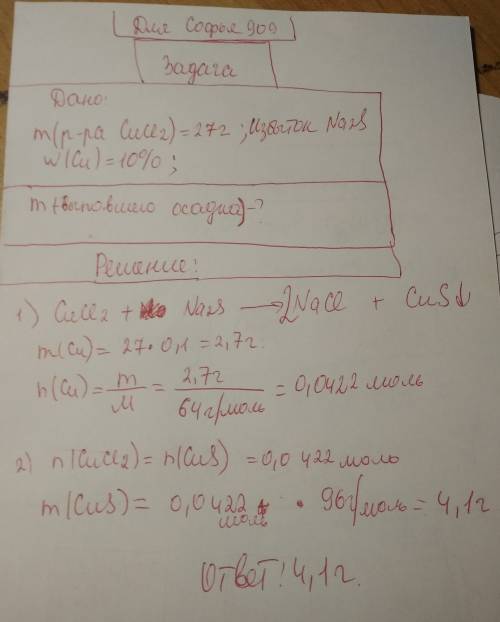 Для Софья 909
Задача
Дано:
m(р-ра CuCl2)=27г; Избыток Na2S
w(Cu)=10%;
m(выпавшего осадка)-?
Решение:
1) CuCl2 + Na2S → 2NaCl + CuS↓
m(Cu)= 27•0,1=2,7г.
n(Cu)= m/M = 2,7г/64г/моль = 0,0422 моль
2) n(CuCl2)= n(CuS) =0,0422 моль
m(CuS)= 0,0422 моль • 96г/моль = 4,1г
Ответ! 4,1г.